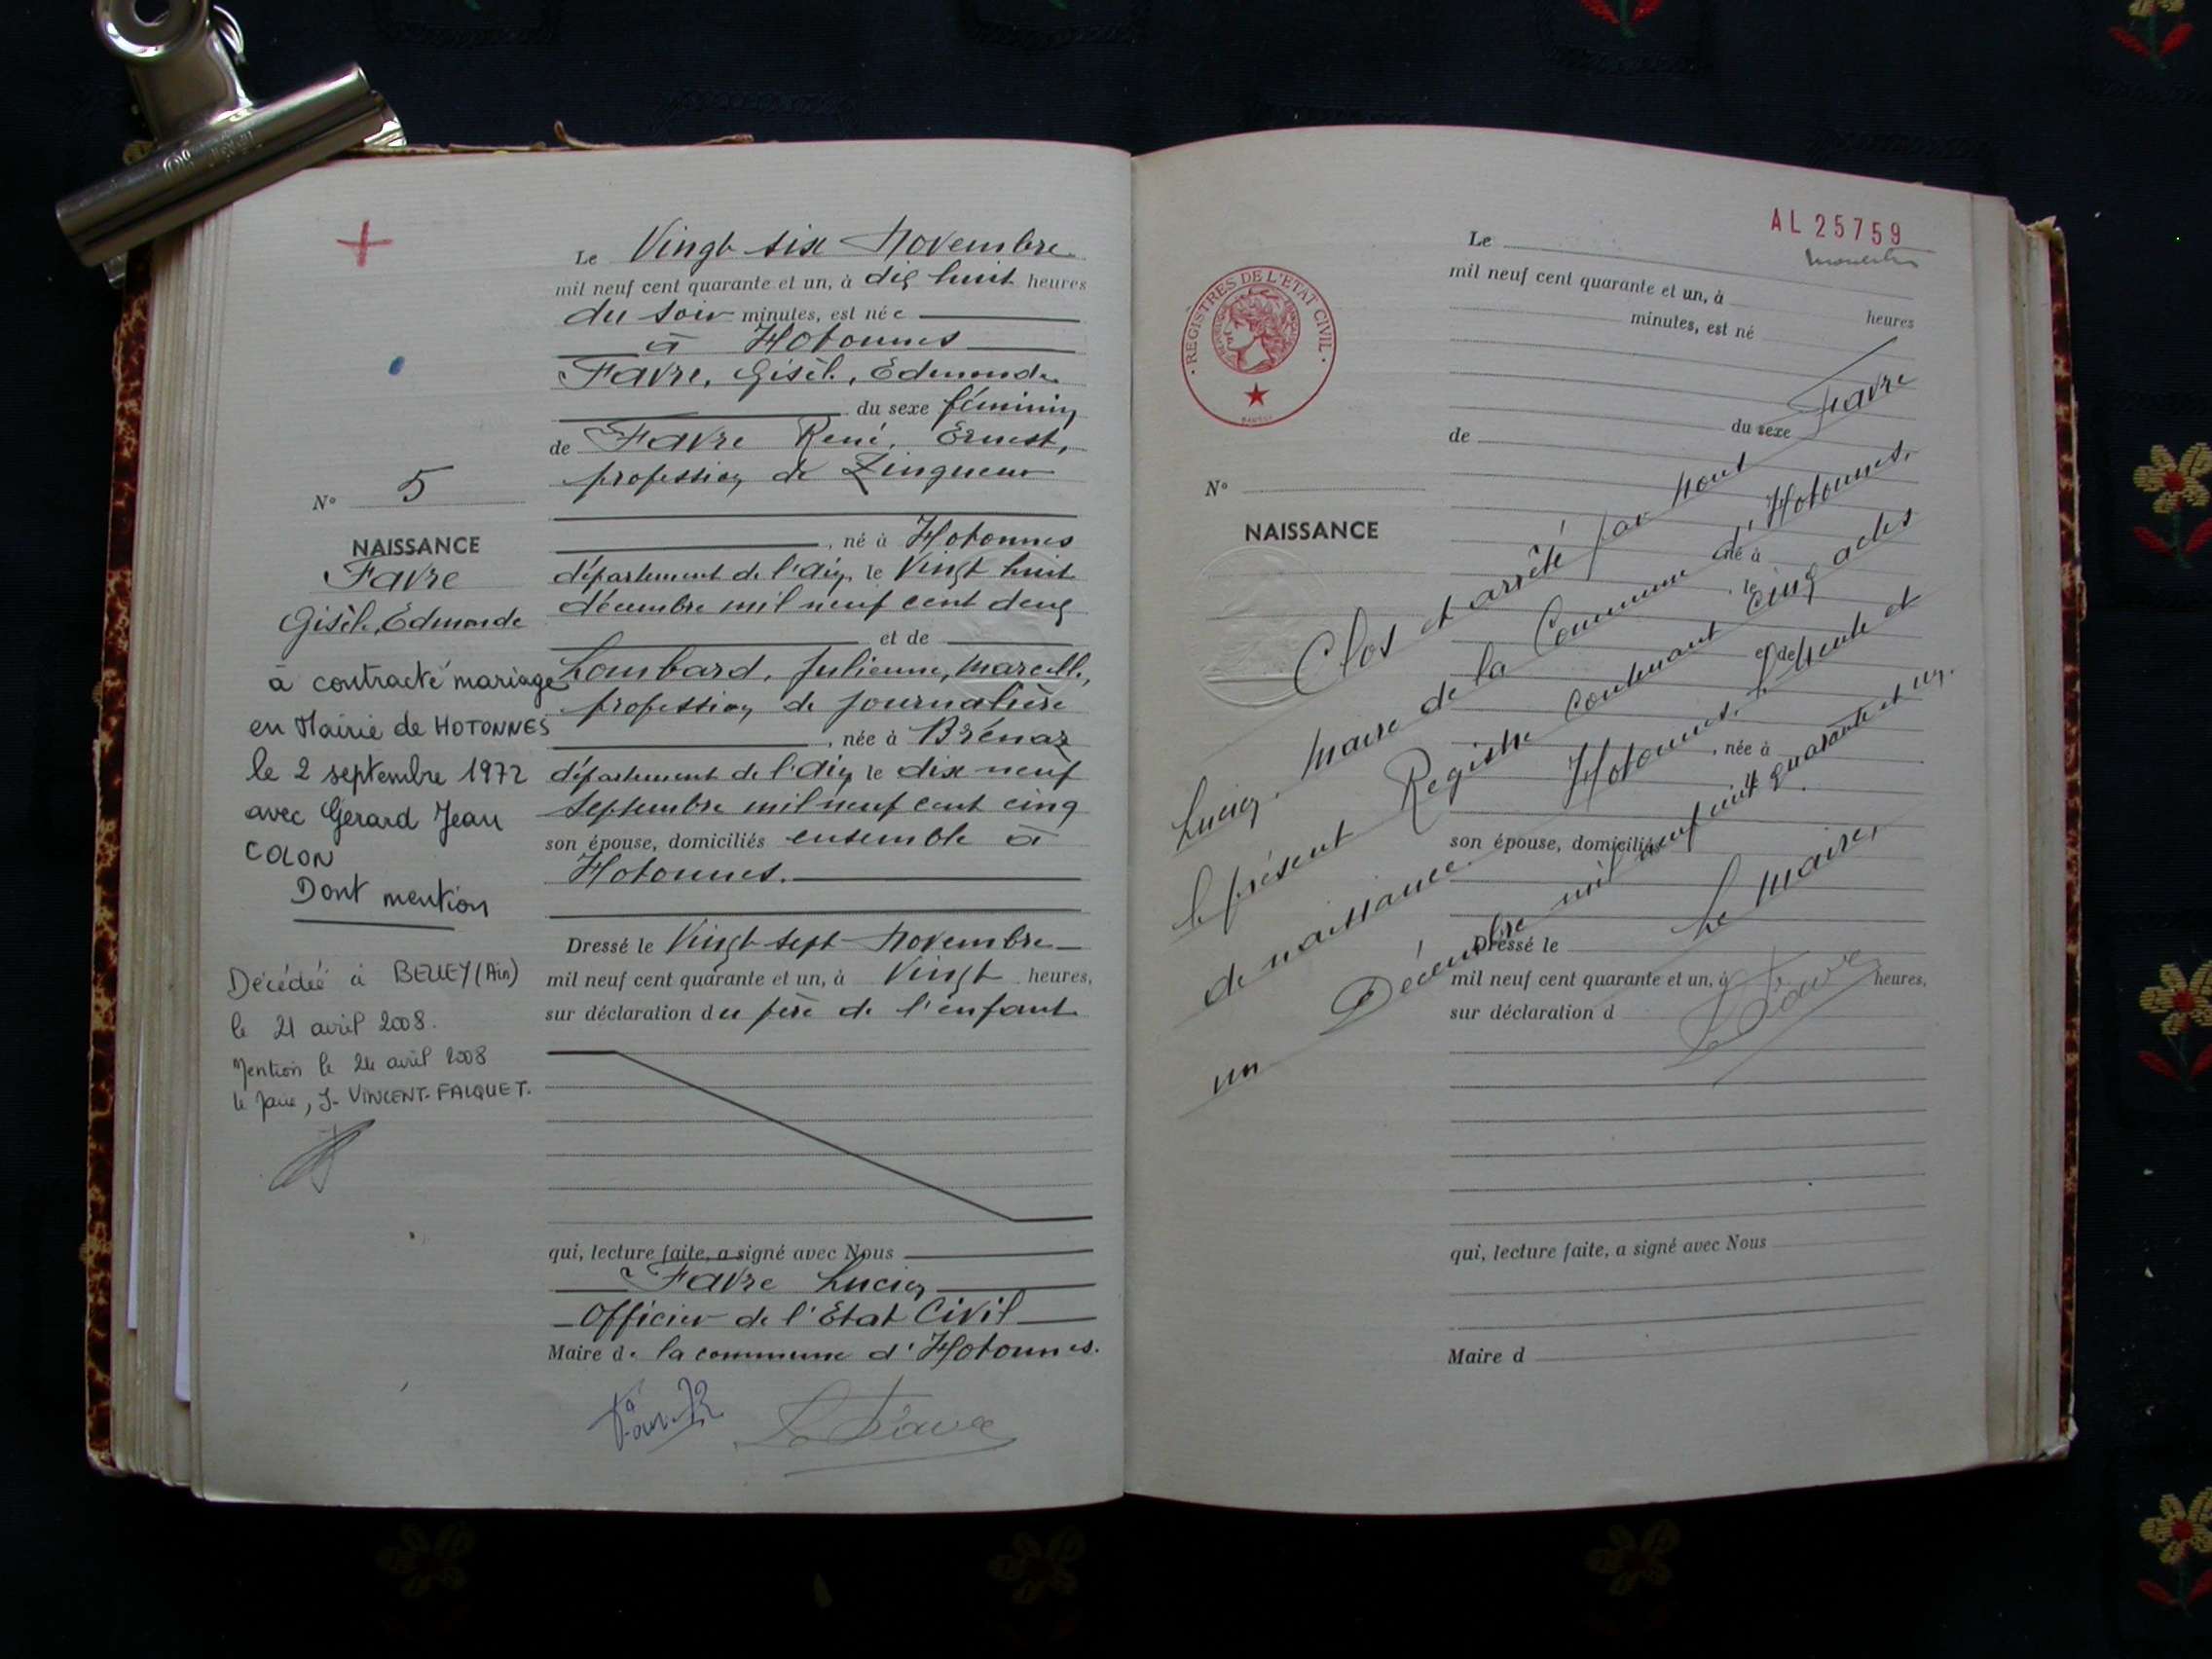 Le Vingt six Novembre
mil neuf cent quarante et un, à dix huit heures
du soir minutes, est née
à Hotonnes
Favre, Gisèle, Edmonde
du sexe féminin
de Favre René, Ernest,
profession de Zingueur
, né à Hotonnes
département de l'Ain, le Vingt huit
décembre mil neuf cent deux
et de
Lombard, Julienne, Marcelle,
profession de journalière
, née à Brénaz
département de l'Ain le dix neuf
septembre mil neuf cent cinq
son épouse, domiciliés ensemble à
Hotonnes.
Dressé le Vingt sept Novembre
mil neuf cent quarante et un, à Vingt heures,
sur déclaration du père de l'enfant
qui, lecture faite, a signé avec Nous
Favre Lucien
Officier de l'Etat Civil
Maire de la commune d'Hotonnes.
L. Favre
N° 5
NAISSANCE
Favre
Gisèle, Edmonde
à contracté mariage
en Mairie de HOTONNES
le 2 septembre 1972
avec Gérard Jean
COLON
Dont mention
Décédée à BELLEY (Ain)
le 21 avril 2008.
Mention le 24 avril 2008
le Maire, J. VINCENT-FALQUET.
AL 25759
REGISTRES DE L'ETAT CIVIL
N°
NAISSANCE
Le
mil neuf cent quarante et un, à
heures
minutes, est né
du sexe
de
né à
le
et de
, née à
son épouse, domiciliés
Dressé le
mil neuf cent quarante et un, à heures,
sur déclaration d
qui, lecture faite, a signé avec Nous
Maire d
Clos et arrêté par nous Favre
Lucien, Maire de la Commune d'Hotonnes,
le présent Registre contenant cinq actes
de naissance. Hotonnes, le trente et
un Décembre mil neuf cent quarante et un.
Le Maire,
L. Favre